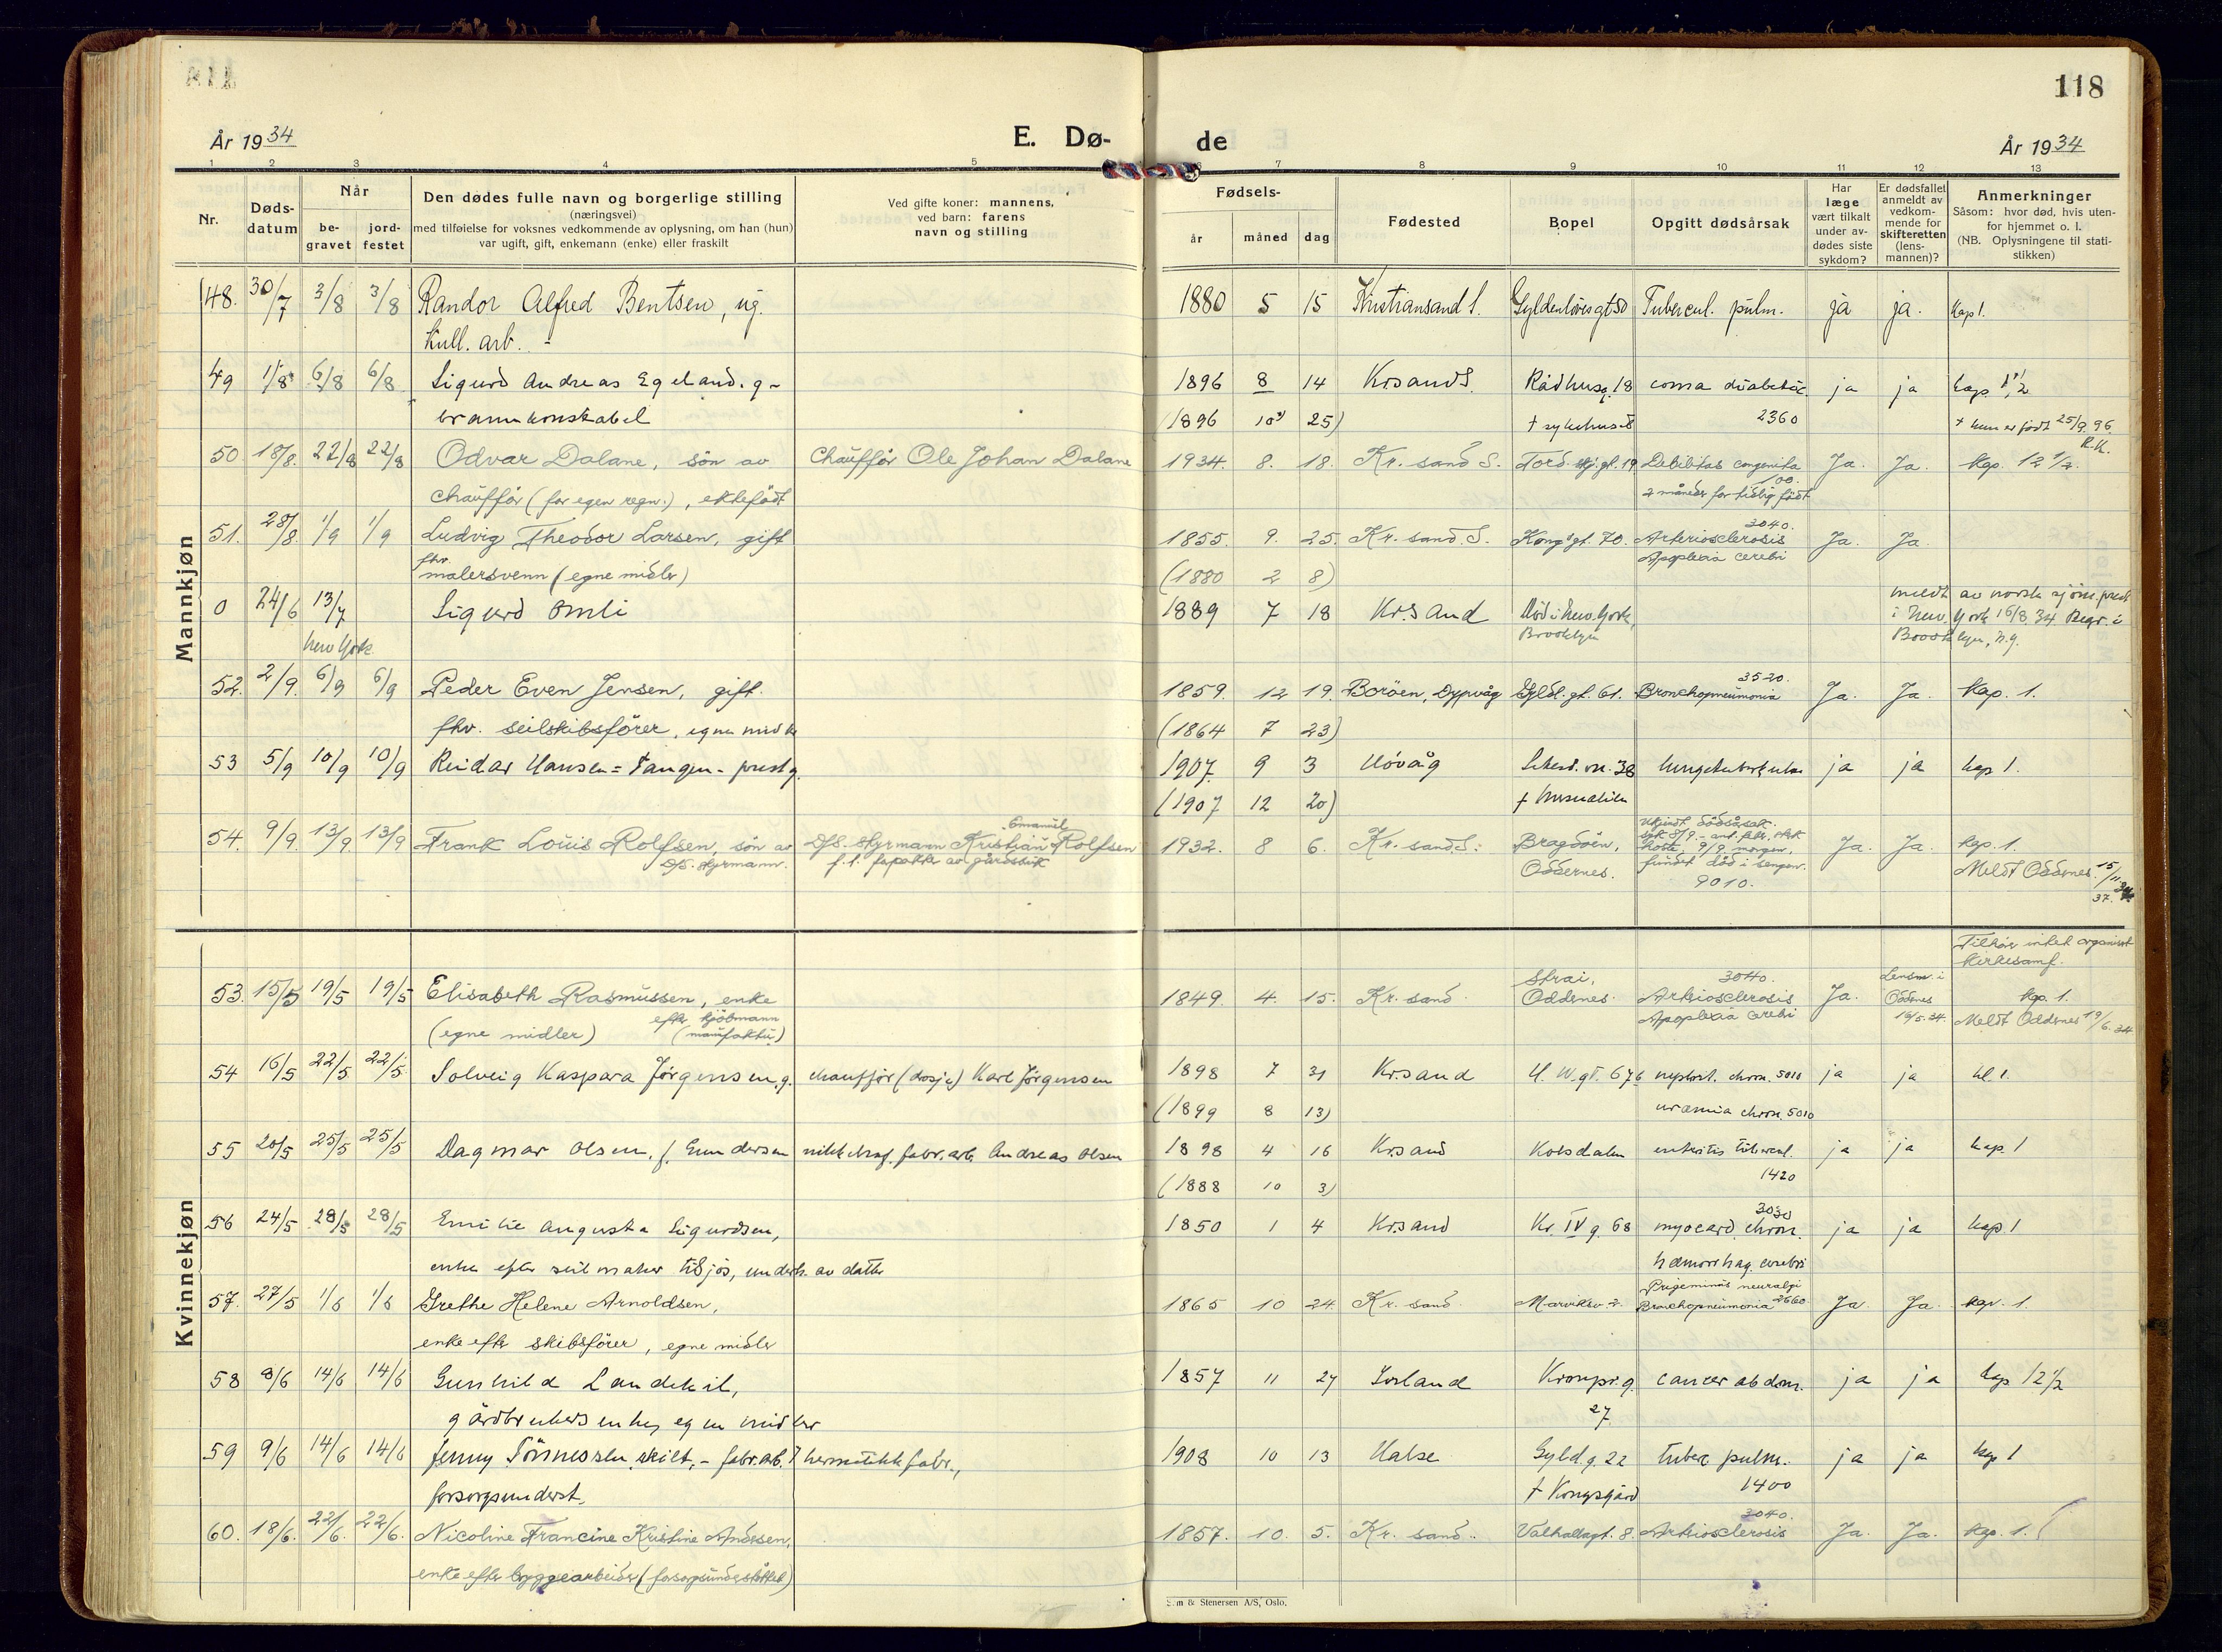 118
År 1934 E. Dø-de År 1934
1 2 3 4 5 6 7 8 9 10 11 12 13
Nr.
Døds-datum
Når
be-gravet
jord-festet
Den dødes fulle navn og borgerlige stilling
(næringsvei)
med tilføielse for voksnes vedkommende av oplysning, om han (hun)
var ugift, gift, enkemann (enke) eller fraskilt
Ved gifte koner: mannens,
ved barn: farens
navn og stilling
Fødsels-
år måned dag
Fødested
Bopel
Opgitt dødsårsak
Har læge vært tilkalt under av-dødes siste sykdom?
Er dødsfallet anmeldt av vedkom-mende for skifteretten (lens-mannen)?
Anmerkninger
Såsom: hvor død, hvis uten-
for hjemmet o. l.
(NB. Oplysningene til stati-
stikken)
Mannkjøn
48. 30/7 3/8 3/8 Randor Alfred Bentsen, ug. 1880 5 15 Kristiansand S. Gyldenløvesgt 50 Tubercul. pulm. ja ja. kap 1.
kull. arb.
49 1/8 6/8 6/8 Sigurd Andreas Egeland. g- 1896 8 14 Krsand S. Rådhusg. 18 coma diabetic. ja ja kap. 1/2
brannkonstabel (1896 10 25) + sykehuset 2360 + hun er født 25/9 96
R.K.
50 18/8. 22/8 22/8 Odvar Dalane, sön av Chaufför Ole Johan Dalane 1934. 8. 18. Kr. sand S. Tord. skj. gt. 19 Debilitas congenita Ja. Ja. Kap. 1 2 1/2.
chauffør (for egen regn.), ektefödt 2 måneder for tidlig födt 100.
51. 28/8. 1/9 1/9 Ludvig Theodor Larsen, gift 1855. 9. 25. Kr. sand. S. Kong's gt. 70. 3040. Arteriosclerosis Ja. Ja.
Apoplexia cerebri
fhv. malersvenn (egne midler) (1880 2 8)
0 24/6 13/7 Sigurd Omli 1889 7 18 Kr.sand Död i New York, meldt av norsk sjöm.prest
New York Brooklyn i New. York 16/8 34 Begr. i
Brooklyn, N.Y.
52. 2/9. 6/9 6/9 Peder Even Jensen, gift. 1859. 12 19. Boröen, Dypvåg Gyld. gt. 61. 3520. Bronchopneumonia Ja. Ja. Kap. 1.
fhv. seilskibsförer, egne midler (1864 7 23)
53 5/9 10/9 10/9 Reidar Hansen = Tangen - prest g. 1907. 9 3 Hövåg 38 lungetuberkulose ja ja kap 1.
(1907 12 20)
54. 9/9. 13/9. 13/9 Frank Louis Rolfsen, sön av D/S. styrmann Kristian Emanuel Rolfsen 1932. 8 6. Kr. sand. S. Bragdöen, Ukjendt dödsårsak. Ja. Ja. kap. 1.
D/S. styrmann. Oddernes. hoste, 9/9 morgen, Meldt Oddernes 15/11 34
fundet död i sengen.
9010. 37.
Kvinnekjøn
Tilhör intet organisert
kirkesamf.
53. 15/5 19/5 19/5 Elisabeth Rasmussen, enke 1849. 4. 15. Kr. sand. Strai, Oddernes. 3040. Arteriosclerosis Ja. Lensm. i Oddernes 16/5. 34. Kap. 1.
(egne midler) efter kjöbmann (manufaktur) Apoplexia cerebri Meldt Oddernes 19/6. 34
54 16/5 22/5 22/5 Solveig Kaspara Jörgensen, g. chauffør (drosje) Karl Jörgensen 1898 7 31 Kr.sand nephrit. chron. 5010 ja ja kl 1.
(1899 8 13) uramia chron. 5010
55 20/5 25/5 25/5 Dagmar Olsen, f. Gundersen nikkelraf. fabr. arb. Andreas Olsen 1898 4 16 Krsand Kolsdalen enteritis tubercul. ja ja kap. 1
(1888 10 3) 1420
56 24/5 28/5 28/5 Emilie Augusta Sigurdsen, 1850 1 4 Krsand Kr. IV g. 68 3030 myocard. chron. ja ja kap 1
enke efter seilmaker tilsjös, underh. av datter hæmorrhag. cerebri
57. 27/5 1/6 1/6 Grethe Helene Arnoldsen, 1865 10 24. Kr. sand. Marviksv. 2. Trigeminus neuralgi Bronchopneumonia 2660 Ja Ja. kap. 1.
enke efter skibsförer, egne midler
58 8/6 14/6 14/6 Gunhild Landskil, 1857 11 27 Iveland Kronpr.g. 27. cancer abdom. ja ja kap. 1 2 1/2
gårdbrukers enke, egne midler
59 9/6 14/6 14/6 Jenny Tönnessen, skilt, - fabr. arb. i hermetikkfabr., 1908 10 13 Halse Gyld.g. 22 tuberc pulm. ja ja kap 1
forsorgsunderst. + Kongsgård 1400
60. 18/6. 22/6. 22/6. Nicoline Francine Kristine Andersen, 1857. 10. 5. Kr. sand. Valhallagt. 8. 3040. Arteriosclerosis Ja. Ja. Kap. 1.
enke efter byggearbeider (forsorgsunderstöttet)
Sem & Stenersen A/S, Oslo.